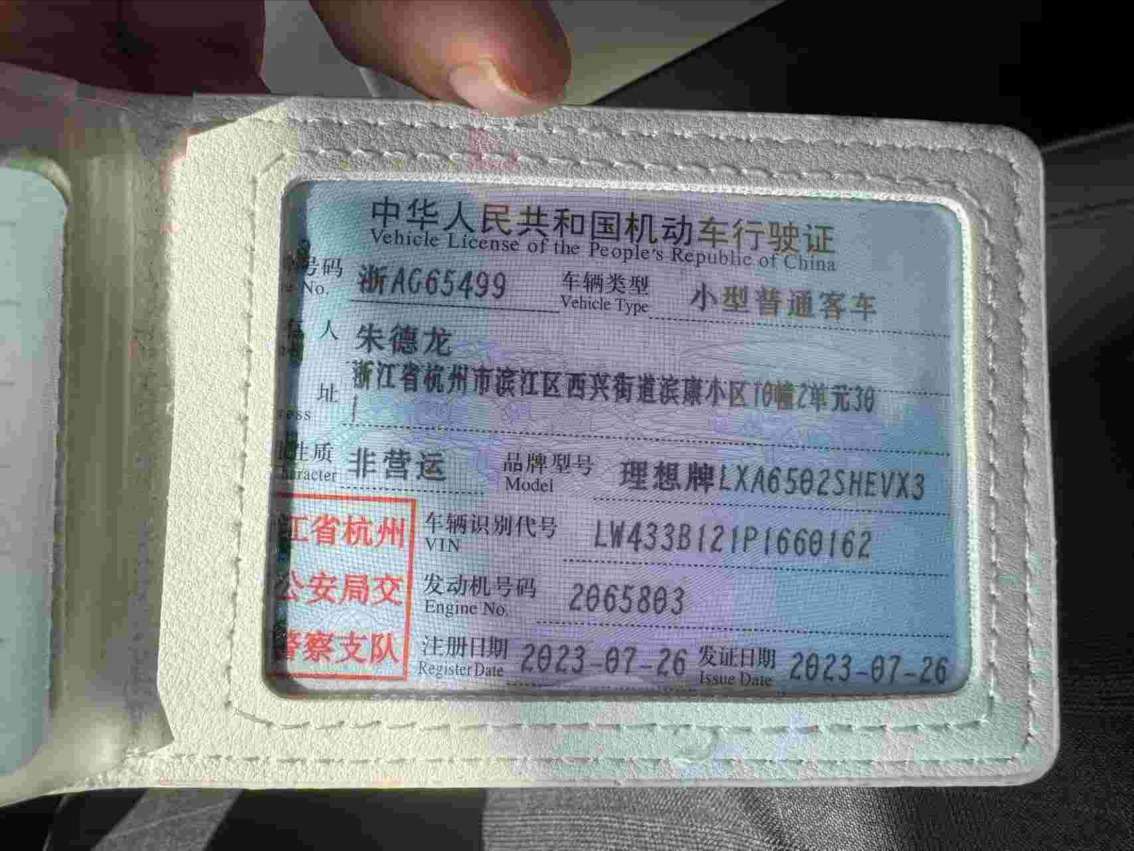 中华人民共和国机动车行驶证
Vehicle License of the People's Republic of China
号码 浙AG65499 车辆类型 小型普通客车
No. Vehicle Type
人 朱德龙
址 浙江省杭州市滨江区西兴街道滨康小区10幢2单元30
1
性质 非营运 品牌型号 理想牌LXA6502SHEVX3
Character Model
江省杭州
公安局交
警察支队
车辆识别代号 LW433B121P1660162
VIN
发动机号码 2065803
Engine No.
注册日期 2023-07-26 发证日期 2023-07-26
Register Date Issue Date